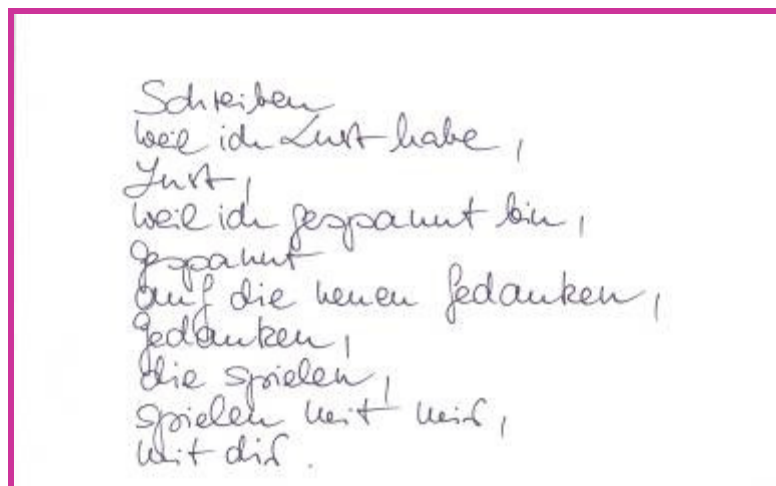 Schreiben
weil ich Lust habe,
Lust,
weil ich gespannt bin,
gespannt
auf die neuen Gedanken,
Gedanken,
die spielen,
spielen mit mir,
mit dir.